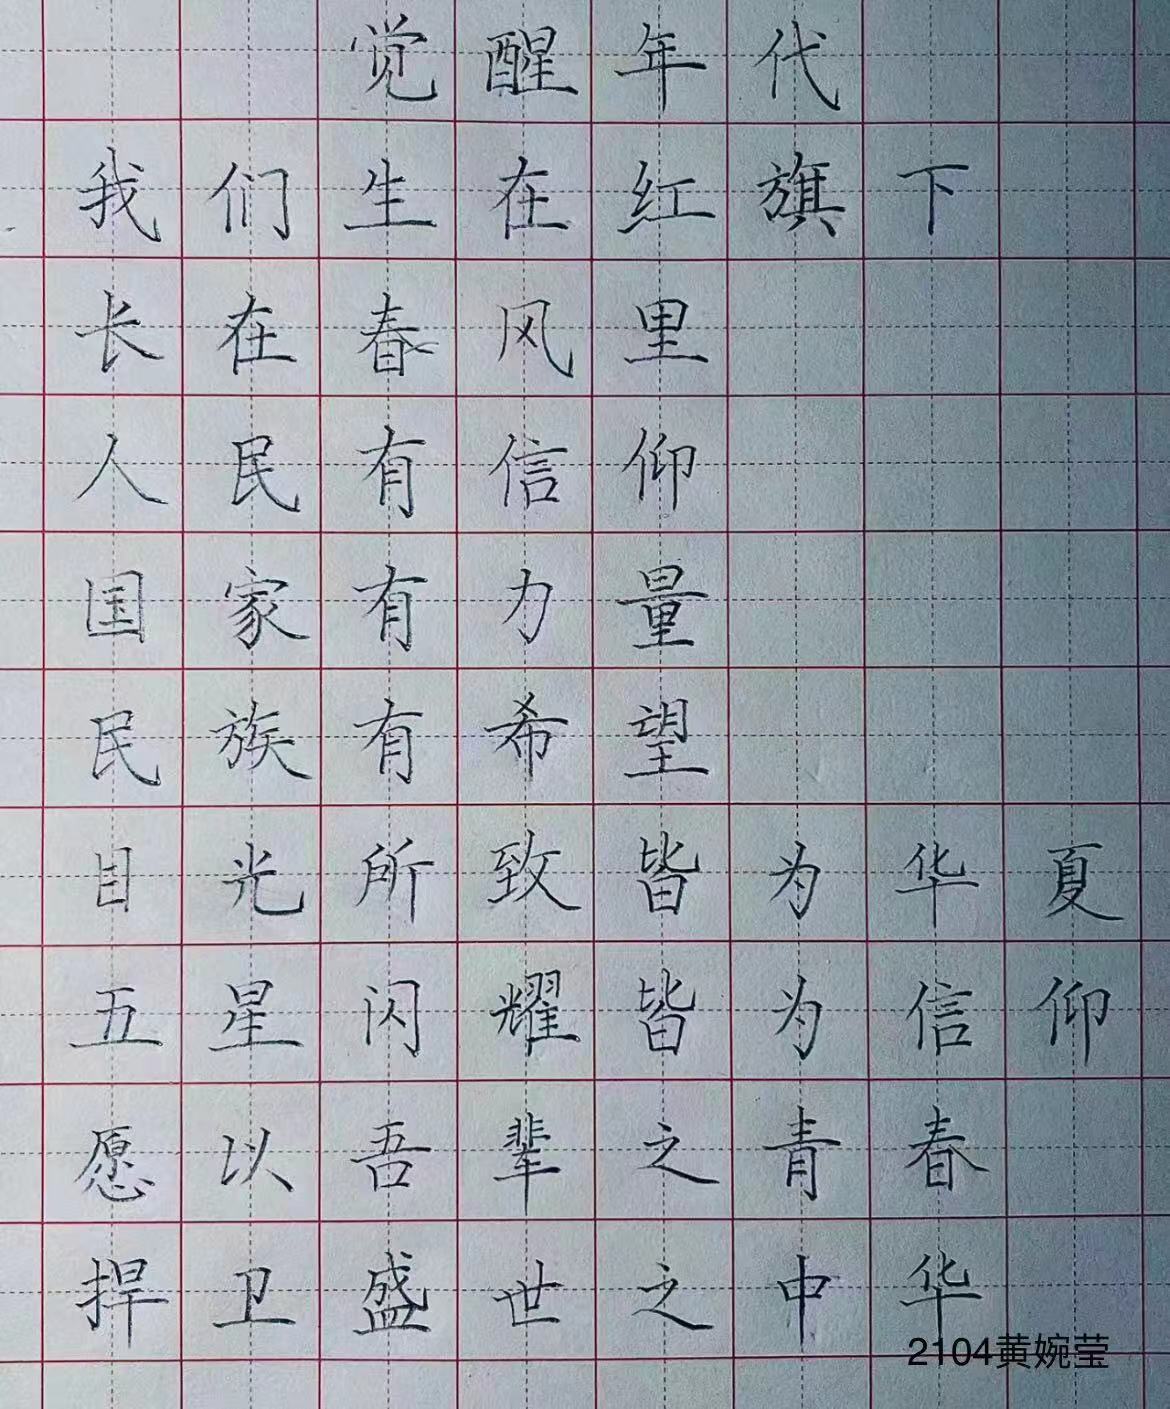 觉醒年代
我们生在红旗下
长在春风里
人民有信仰
国家有力量
民族有希望
目光所致皆为华夏
五星闪耀皆为信仰
愿以吾辈之青春
捍卫盛世之中华
2104黄婉莹